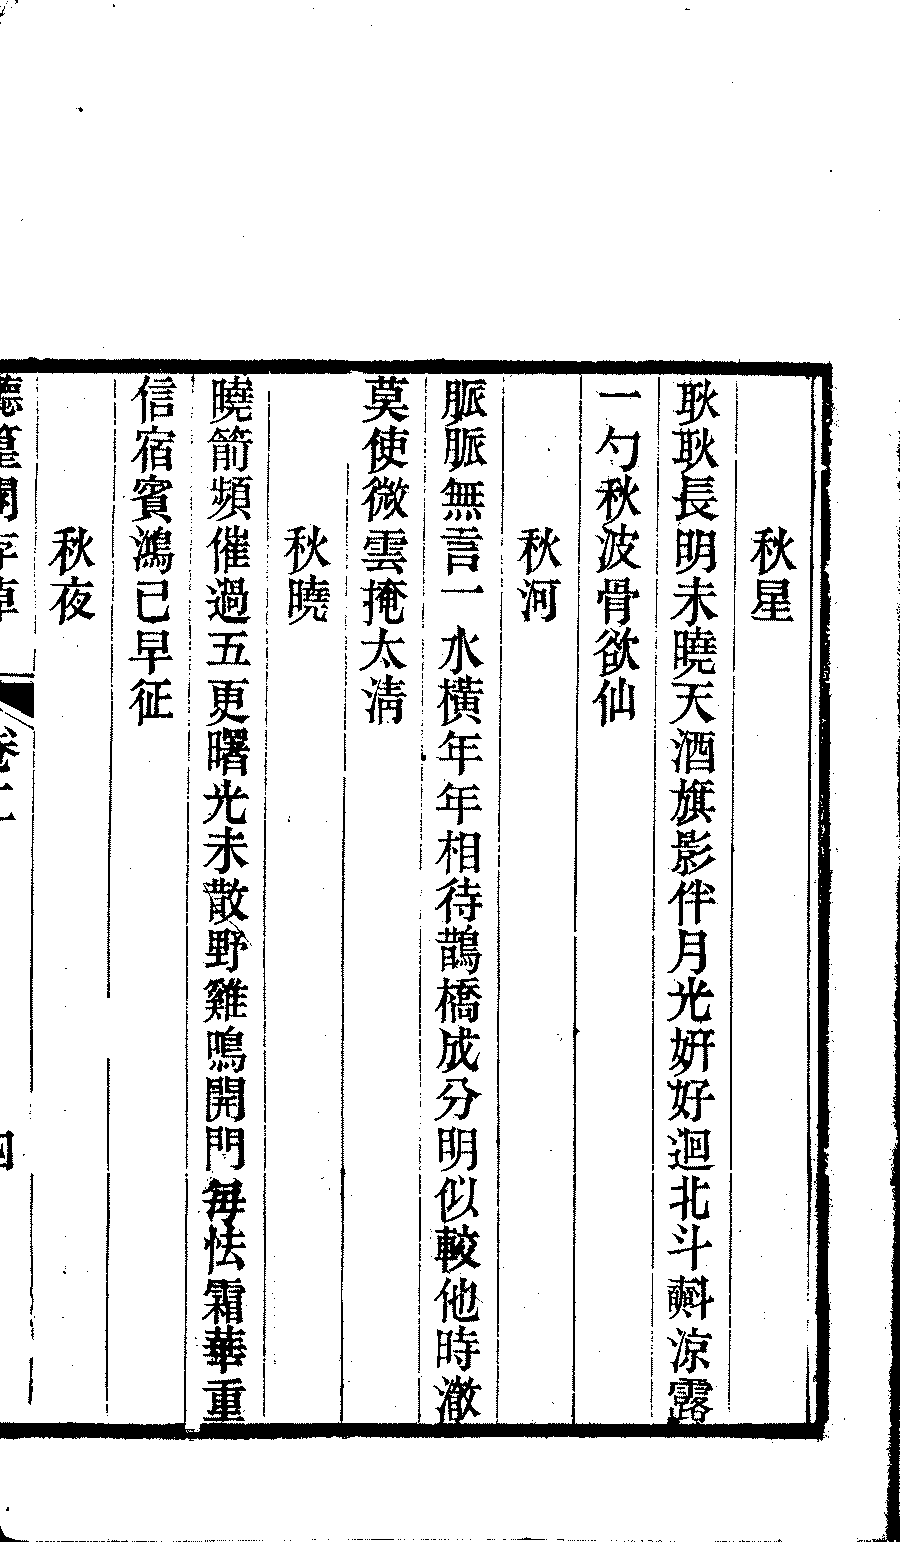 秋星
耿耿長明未曉天酒旗影伴月光姸好迴北斗㪺涼露
一勺秋波骨欲仙
秋河
脈脈無言一水橫年年相待鵲橋成分明似較他時澈
莫使微雲掩太淸
秋曉
曉箭頻催過五更曙光未散野雞鳴開門每怯霜華重
信宿賓鴻已早征
秋夜